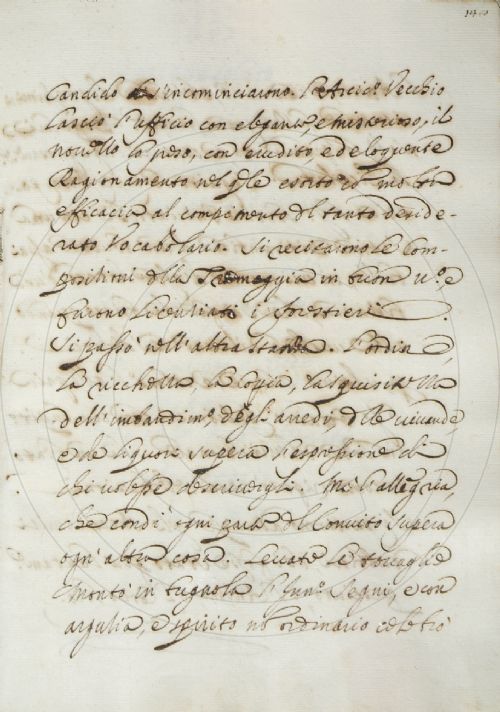 Candido s'incominciarono. L'Arcic.º Vecchio
lasciò l'ufficio con elegante, e misterioso, il
novello la prese, con erudito, ed eloquente
Ragionamento nel qle esortò con molta
efficacia al compimento del tanto deside-
rato Vocabolario. Si recitarono le Com-
positioni della Tramoggia in buon n.º e
furono licentiati i forestieri.
Si passò nell'altra stanza. L'ordine,
la ricchezza, la copia, la squisitezza
dell'imbandim.º degli arredi, delle vivande,
e de liquori supera l'espressione di
chi volesse descrivergli. Ma l'allegria,
che condì ogni parte del Convito supera
ogn'altra cosa. Levate le tovaglie
Montò in bugnola l'Inn.º Segni, e con
argutia, e spirito no' ordinario celebrò